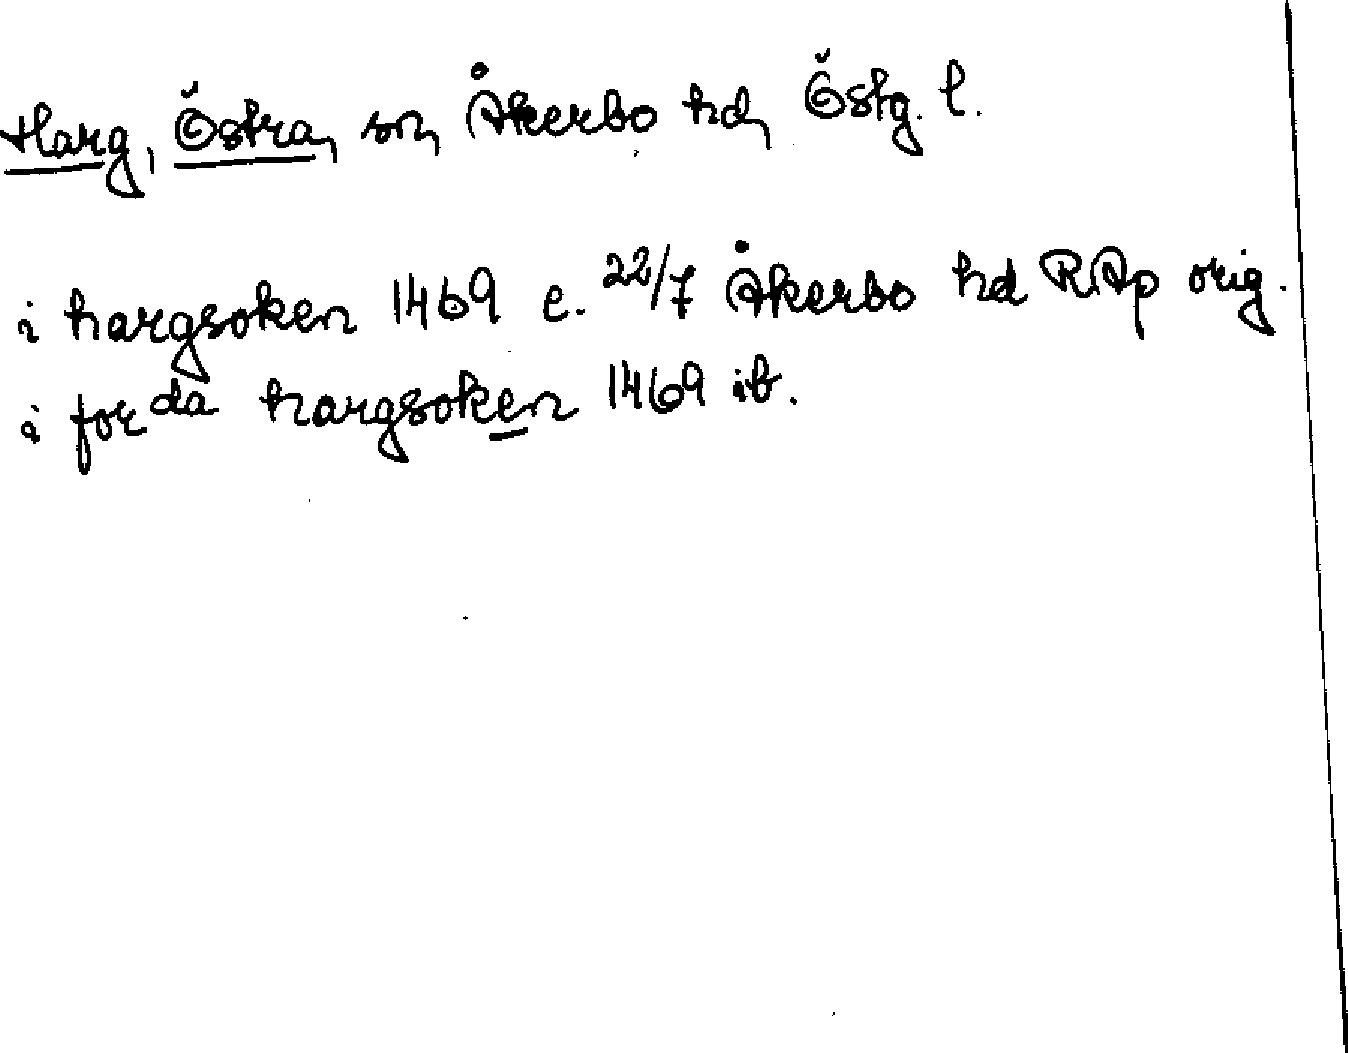 Harg, Östra, sn, Åkerbo hd, Östg. l.
i hargsoken 1469 e. 22/7 Åkerbo hd RAp orig.
i for da hargsoken 1469 ib.